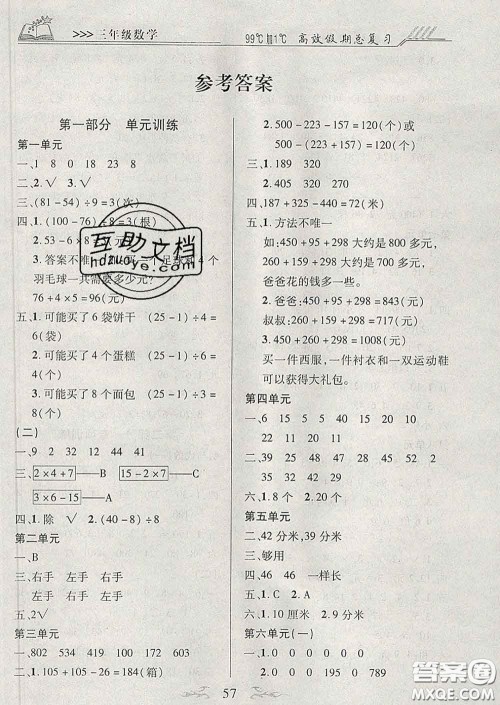 >>> 三年级数学
99℃加1℃ 高效假期总复习
参考答案
第一部分 单元训练
第一单元
一、1 8 0 18 23 8
二、2.√ 3.√
三、(81-54)÷9=3(次)
四、1.(100-76)÷8=3(根)
2.53-6×8
3.答案不唯一
羽毛球一共需要多少元?
76+4×5=96(元)
五、1.可能买了6袋饼干 (25-1)÷4=
6(袋)
2.可能买了4个蛋糕 (25-1)÷6=
4(个)
3.可能买了8个面包 (25-1)÷3=
8(个)
(二)
一、9 2 32 12 44 41
三、2×4+7 —B 15-2×7 —C
3×6-15 —A
四、1.除 √ 2.(40-8)÷8
第二单元
一、B
三、右手 左手 右手
左手 左手 右手
五、2√
第三单元
一、802 534 419 100 153 660
二、1.105+105-26=184(箱)
2.500-223-157=120(个)或
500-(223+157)=120(个)
三、1.189 320
2.405 320 241
四、187+325-440=72(米)
五、1.方法不唯一
如:450+95+298大约是800多元,
450+59+298大约是700多元,
爸爸花的钱多一些。
2.爸爸:450+95+298=843(元)
叔叔:450+59+298=807(元)
3.450+260+298=1008(元)
买一件西服,一件衬衣和一双运动鞋
可以获得大礼包。
第四单元
一、6 15 5 45 20 15 10
22 11 28 11
二、20 19 18 17 16 15
六、1.8个 2.20个
第五单元
二、42分米,39分米
三、够用
四、46 46 一样长
六、1.10厘米 2.9分米
第六单元(一)
一、180 30 210 360 270
0 250 180 187 0
57
互助文档
hdzuoye.com
答案圈
MXQE.COM